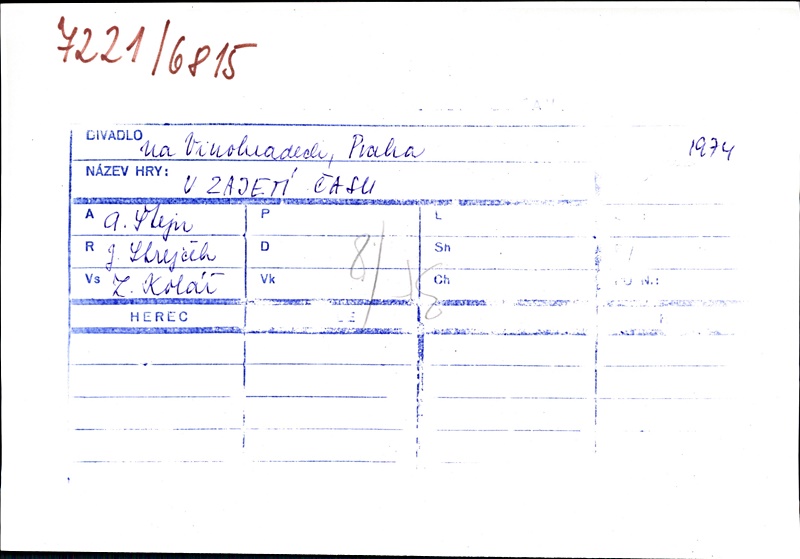 7221/6815
DIVADLO na Vinohradech, Praha 1974
NÁZEV HRY: V ZAJETÍ ČASU
A A. Štejn P L
R J. Strejček D Sh
Vs Z. Kolář Vk Ch
8/15
HEREC